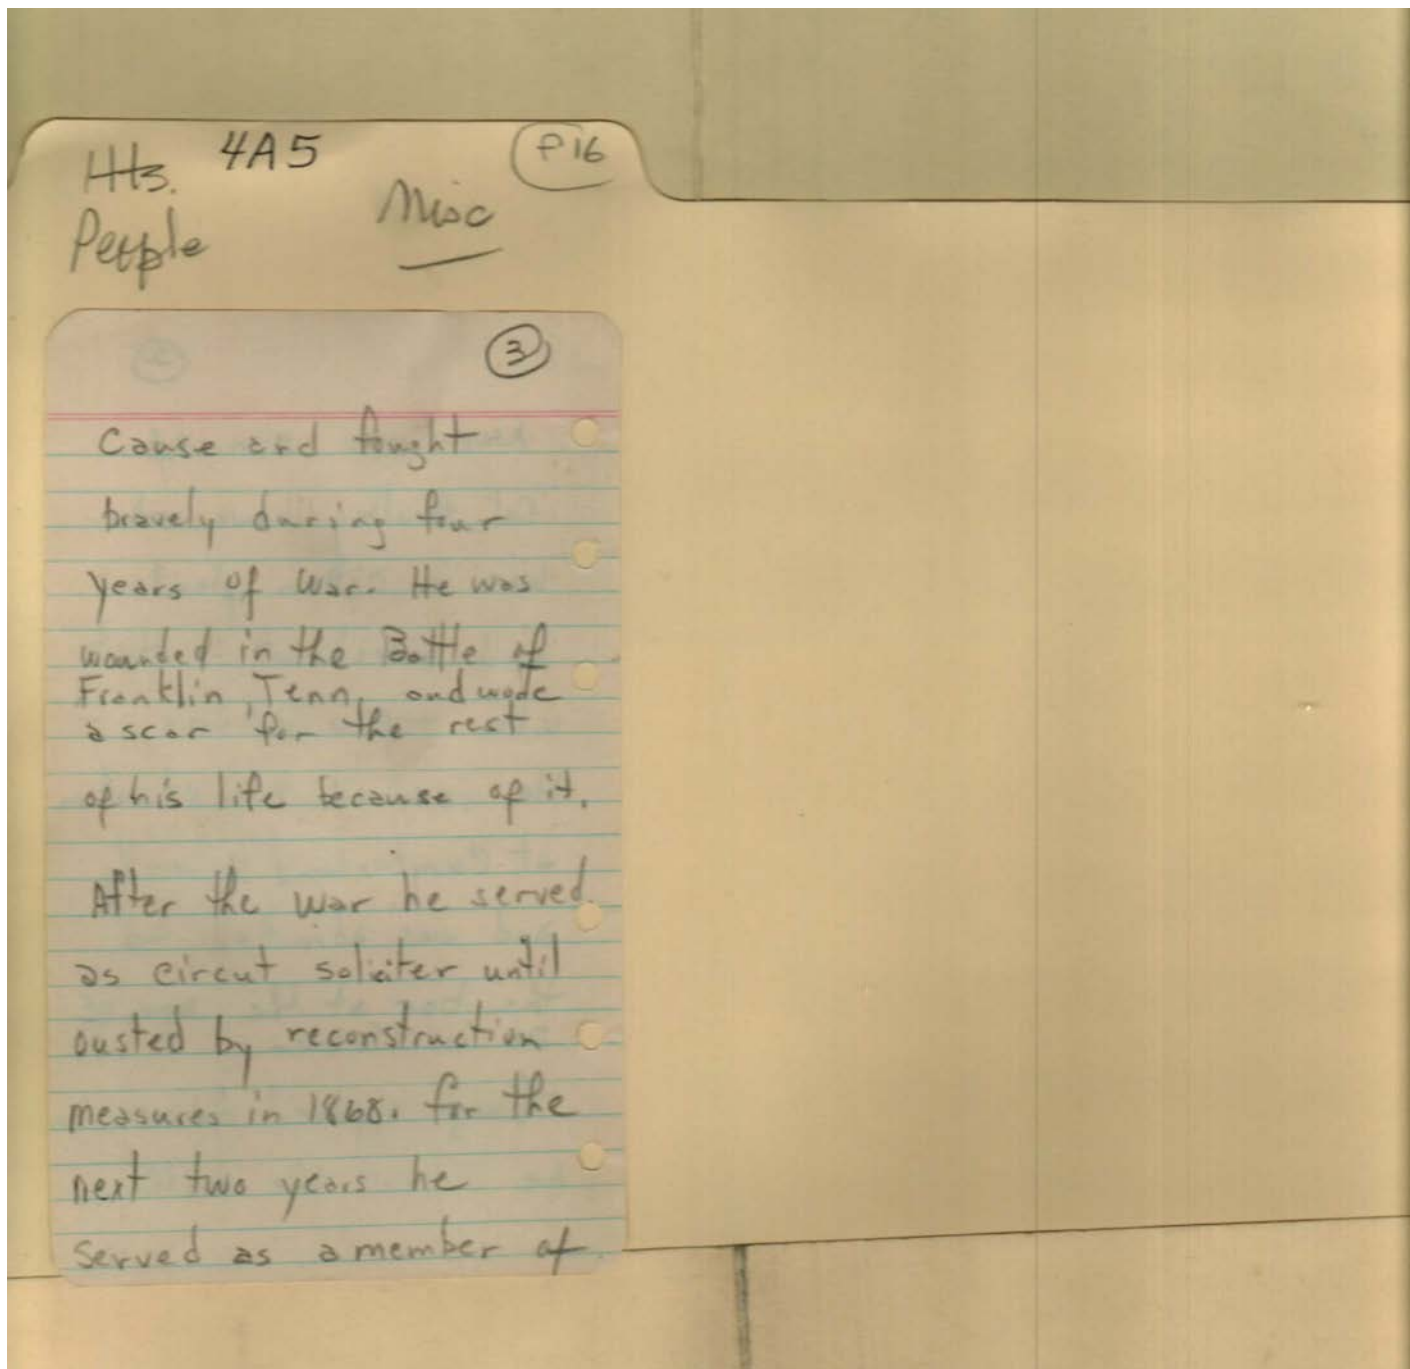 Hts. 4A5 P16
People Misc
3
Cause and fought
bravely during four
years of War. He was
wounded in the Battle of
Franklin, Tenn, and wode
a scar for the rest
of his life because of it.
After the war he served
as circut soliciter until
ousted by reconstruction
measures in 1868. for the
next two years he
served as a member of